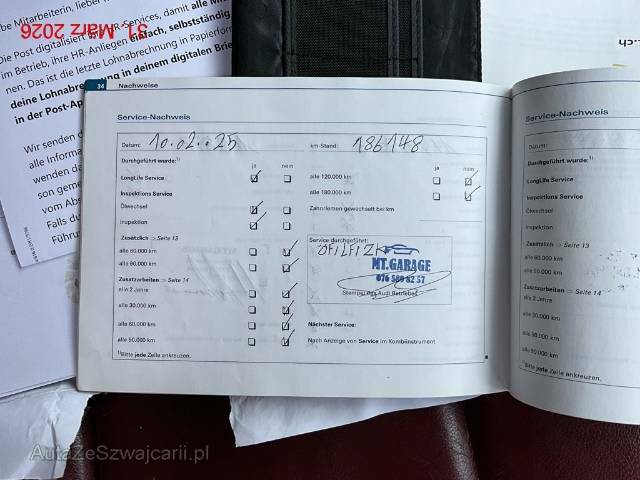 be Mitarbeiterin, lieber
Die Post digitalisiert HR-Services, damit alle M
im Betrieb, ihre HR-Anliegen einfach, selbstständig
nen. Das ist die letzte Lohnabrechnung in Papierform
deine Lohnabrechnung in deinem digitalen Brief
in der Post-App
31. März 2026
Wir senden d
alle Informa
wenden da
son geme
vom Abs
Falls du
Führu
34 Nachweise
Service-Nachweis
Datum: 10.02.25 km-Stand: 186148
Durchgeführt wurde:1) ja nein ja nein
LongLife Service alle 120.000 km
Inspektions Service alle 180.000 km
Ölwechsel Zahnriemen gewechselt bei km
Inspektion
Zusätzlich ⇒ Seite 13 Service durchgeführt:
alle 60.000 km ÖFILFIZK
alle 90.000 km MT.GARAGE
Zusatzarbeiten ⇒ Seite 14 076 589 82 57
alle 2 Jahre Stempel des Audi Betriebes
alle 30.000 km
alle 60.000 km Nächster Service:
alle 90.000 km Nach Anzeige von Service im Kombiinstrument
1)Bitte jede Zeile ankreuzen.
Service-Nachweis
Datum:
Durchgeführt wurde:1)
LongLife Service
Inspektions Service
Ölwechsel
Inspektion
Zusätzlich ⇒ Seite 13
alle 60.000 km
alle 90.000 km
Zusatzarbeiten ⇒ Seite 14
alle 2 Jahre
alle 30.000 km
alle 60.000 km
alle 90.000 km
1)Bitte jede Zeile ankreuzen.
AutaZeSzwajcarii.pl